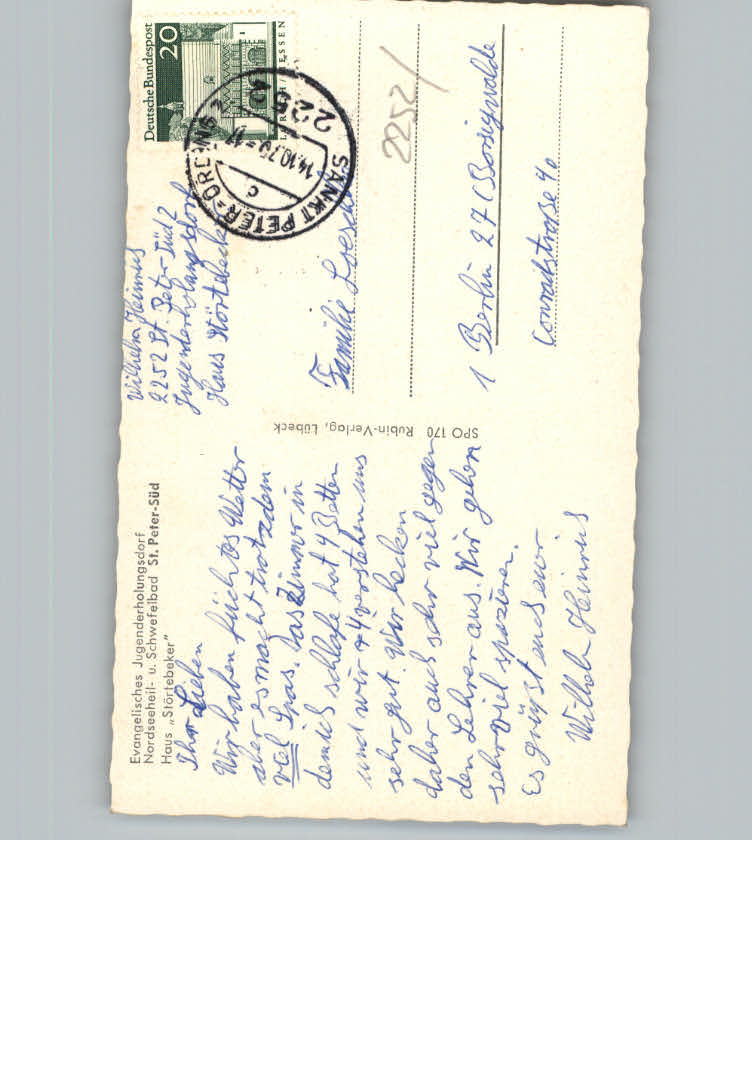 Evangelisches Jugenderholungsdorf
Nordseeheil- u. Schwefelbad St. Peter-Süd
Haus „Störtebeker"
Ihr Lieben
Wir haben füchtes Wetter
aber es macht trotzdem
viel Spas. Das Zimmer in
dem ich schlafe hat 4 Betten
und wir 4 verstehen uns
sehr gut. Wir hecken
daher auch sehr viel gegen
den Lehrer aus. Wir gehen
sehr viel spazieren.
Es grüst euch euer
Wilhelm Heinrich
SPO 170 Rubin-Verlag, Lübeck
Wilhelm
2252 St. Peter-Süd 2
Jugenderholungsdorf
Haus Störtebeker
Deutsche Bundespost
20
LORSCH/HESSEN
225
SANKT PETER-ORDING 2
14.10.70-17
c
2252/
Familie
1 Berlin 27 (Borsigwalde
Conradstraße 40